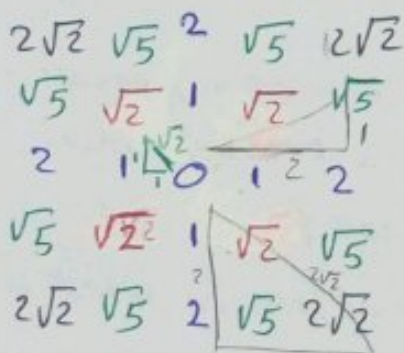 2√2 √5 2 √5 2√2
√5 √2 1 √2 √5
√2 1
2 1 1 0 1 2 2
1
√5 √2 2 1 √2 √5
2 2√2
2√2 √5 2 √5 2√2